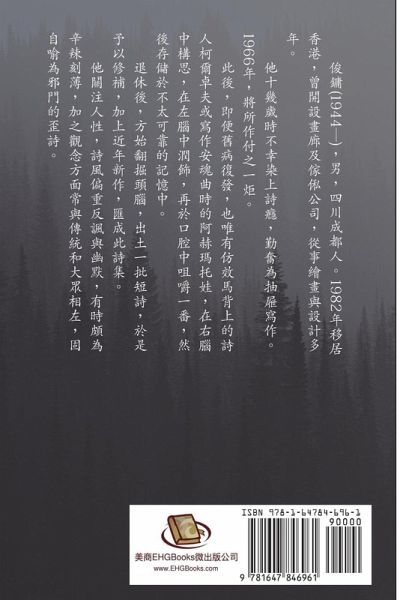 俊鏞(1944—)，男，四川成都人。1982年移居
香港，曾開設畫廊及傢俬公司，從事繪畫與設計多
年。
他十幾歲時不幸染上詩癮，勤奮為抽屜寫作。
1966年，將所作付之一炬。
此後，即便舊病復發，也唯有仿效馬背上的詩
人柯爾卓夫或寫作安魂曲時的阿赫瑪托娃，在右腦
中構思，在左腦中潤飾，再於口腔中咀嚼一番，然
後存儲於不太可靠的記憶中。
退休後，方始翻掘頭腦，出土一批短詩，於是
予以修補，加上近年新作，匯成此詩集。
他關注人性，詩風偏重反諷與幽默，有時頗為
辛辣刻薄，加之觀念方面常與傳統和大眾相左，因
自喻為邪門的歪詩。
美商EHGBooks微出版公司
www.EHGBooks.com
ISBN 978-1-64784-696-1
90000
9 781647 846961